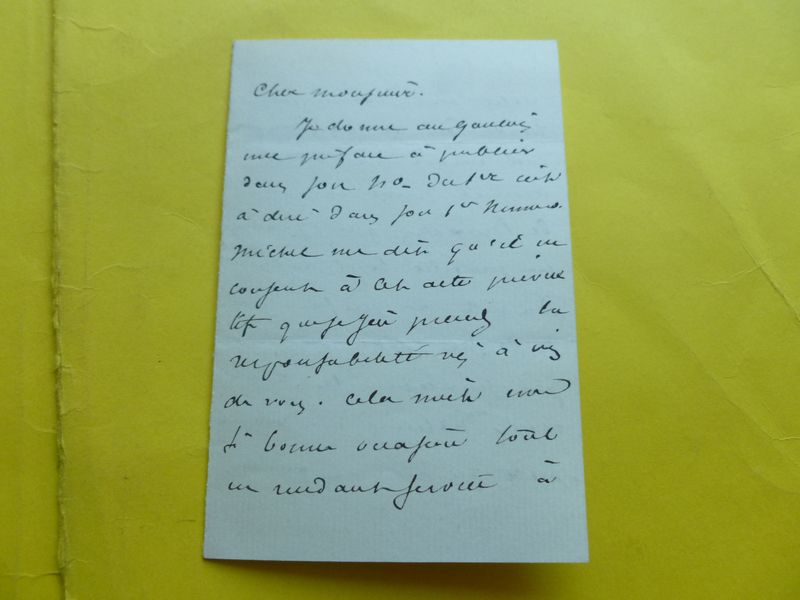 Cher monsieur.
Je donne au Gaulois
une préface à publier
dans son No du 1er
à dire dans son 1er Numéro
Michel me dit qu'il ne
consent à cet acte
que si j'en prends la
responsabilité vis à vis
de vous. Cela
bonne occasion tout
en rendant service à